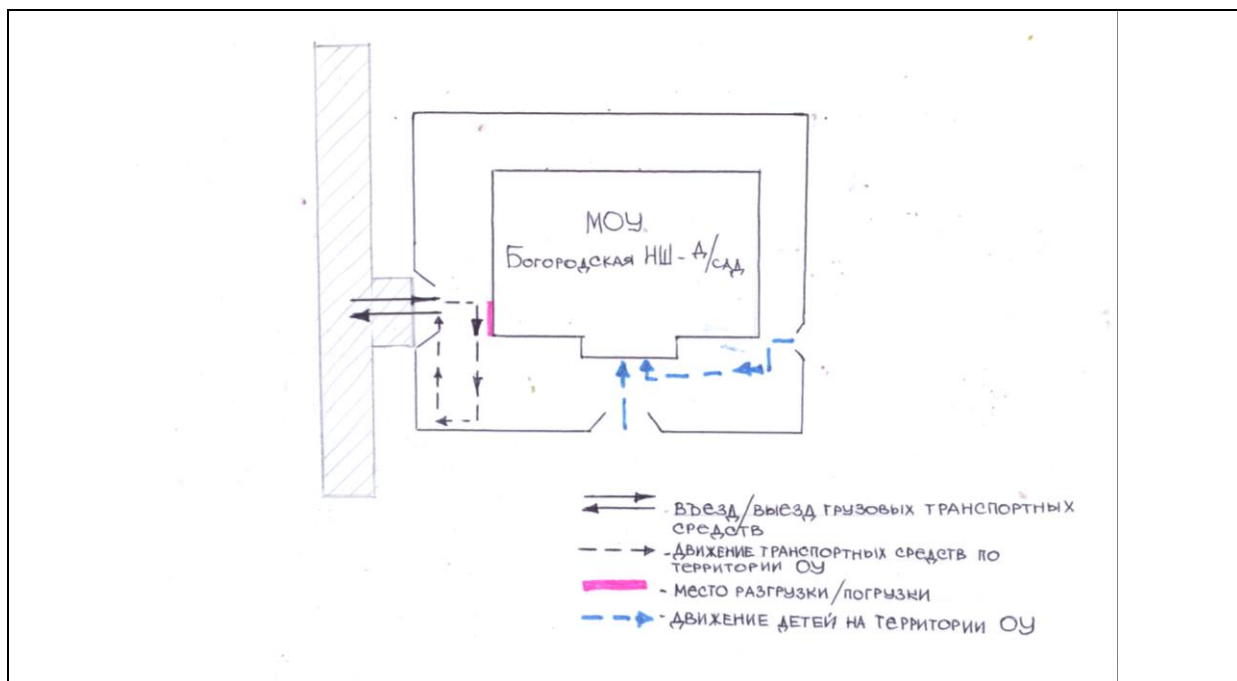 МОУ
Богородская НШ - д/сад
- ВЪЕЗД/ВЫЕЗД ГРУЗОВЫХ ТРАНСПОРТНЫХ
СРЕДСТВ
- ДВИЖЕНИЕ ТРАНСПОРТНЫХ СРЕДСТВ ПО
ТЕРРИТОРИИ ОУ
- МЕСТО РАЗГРУЗКИ/ПОГРУЗКИ
- ДВИЖЕНИЕ ДЕТЕЙ НА ТЕРРИТОРИИ ОУ